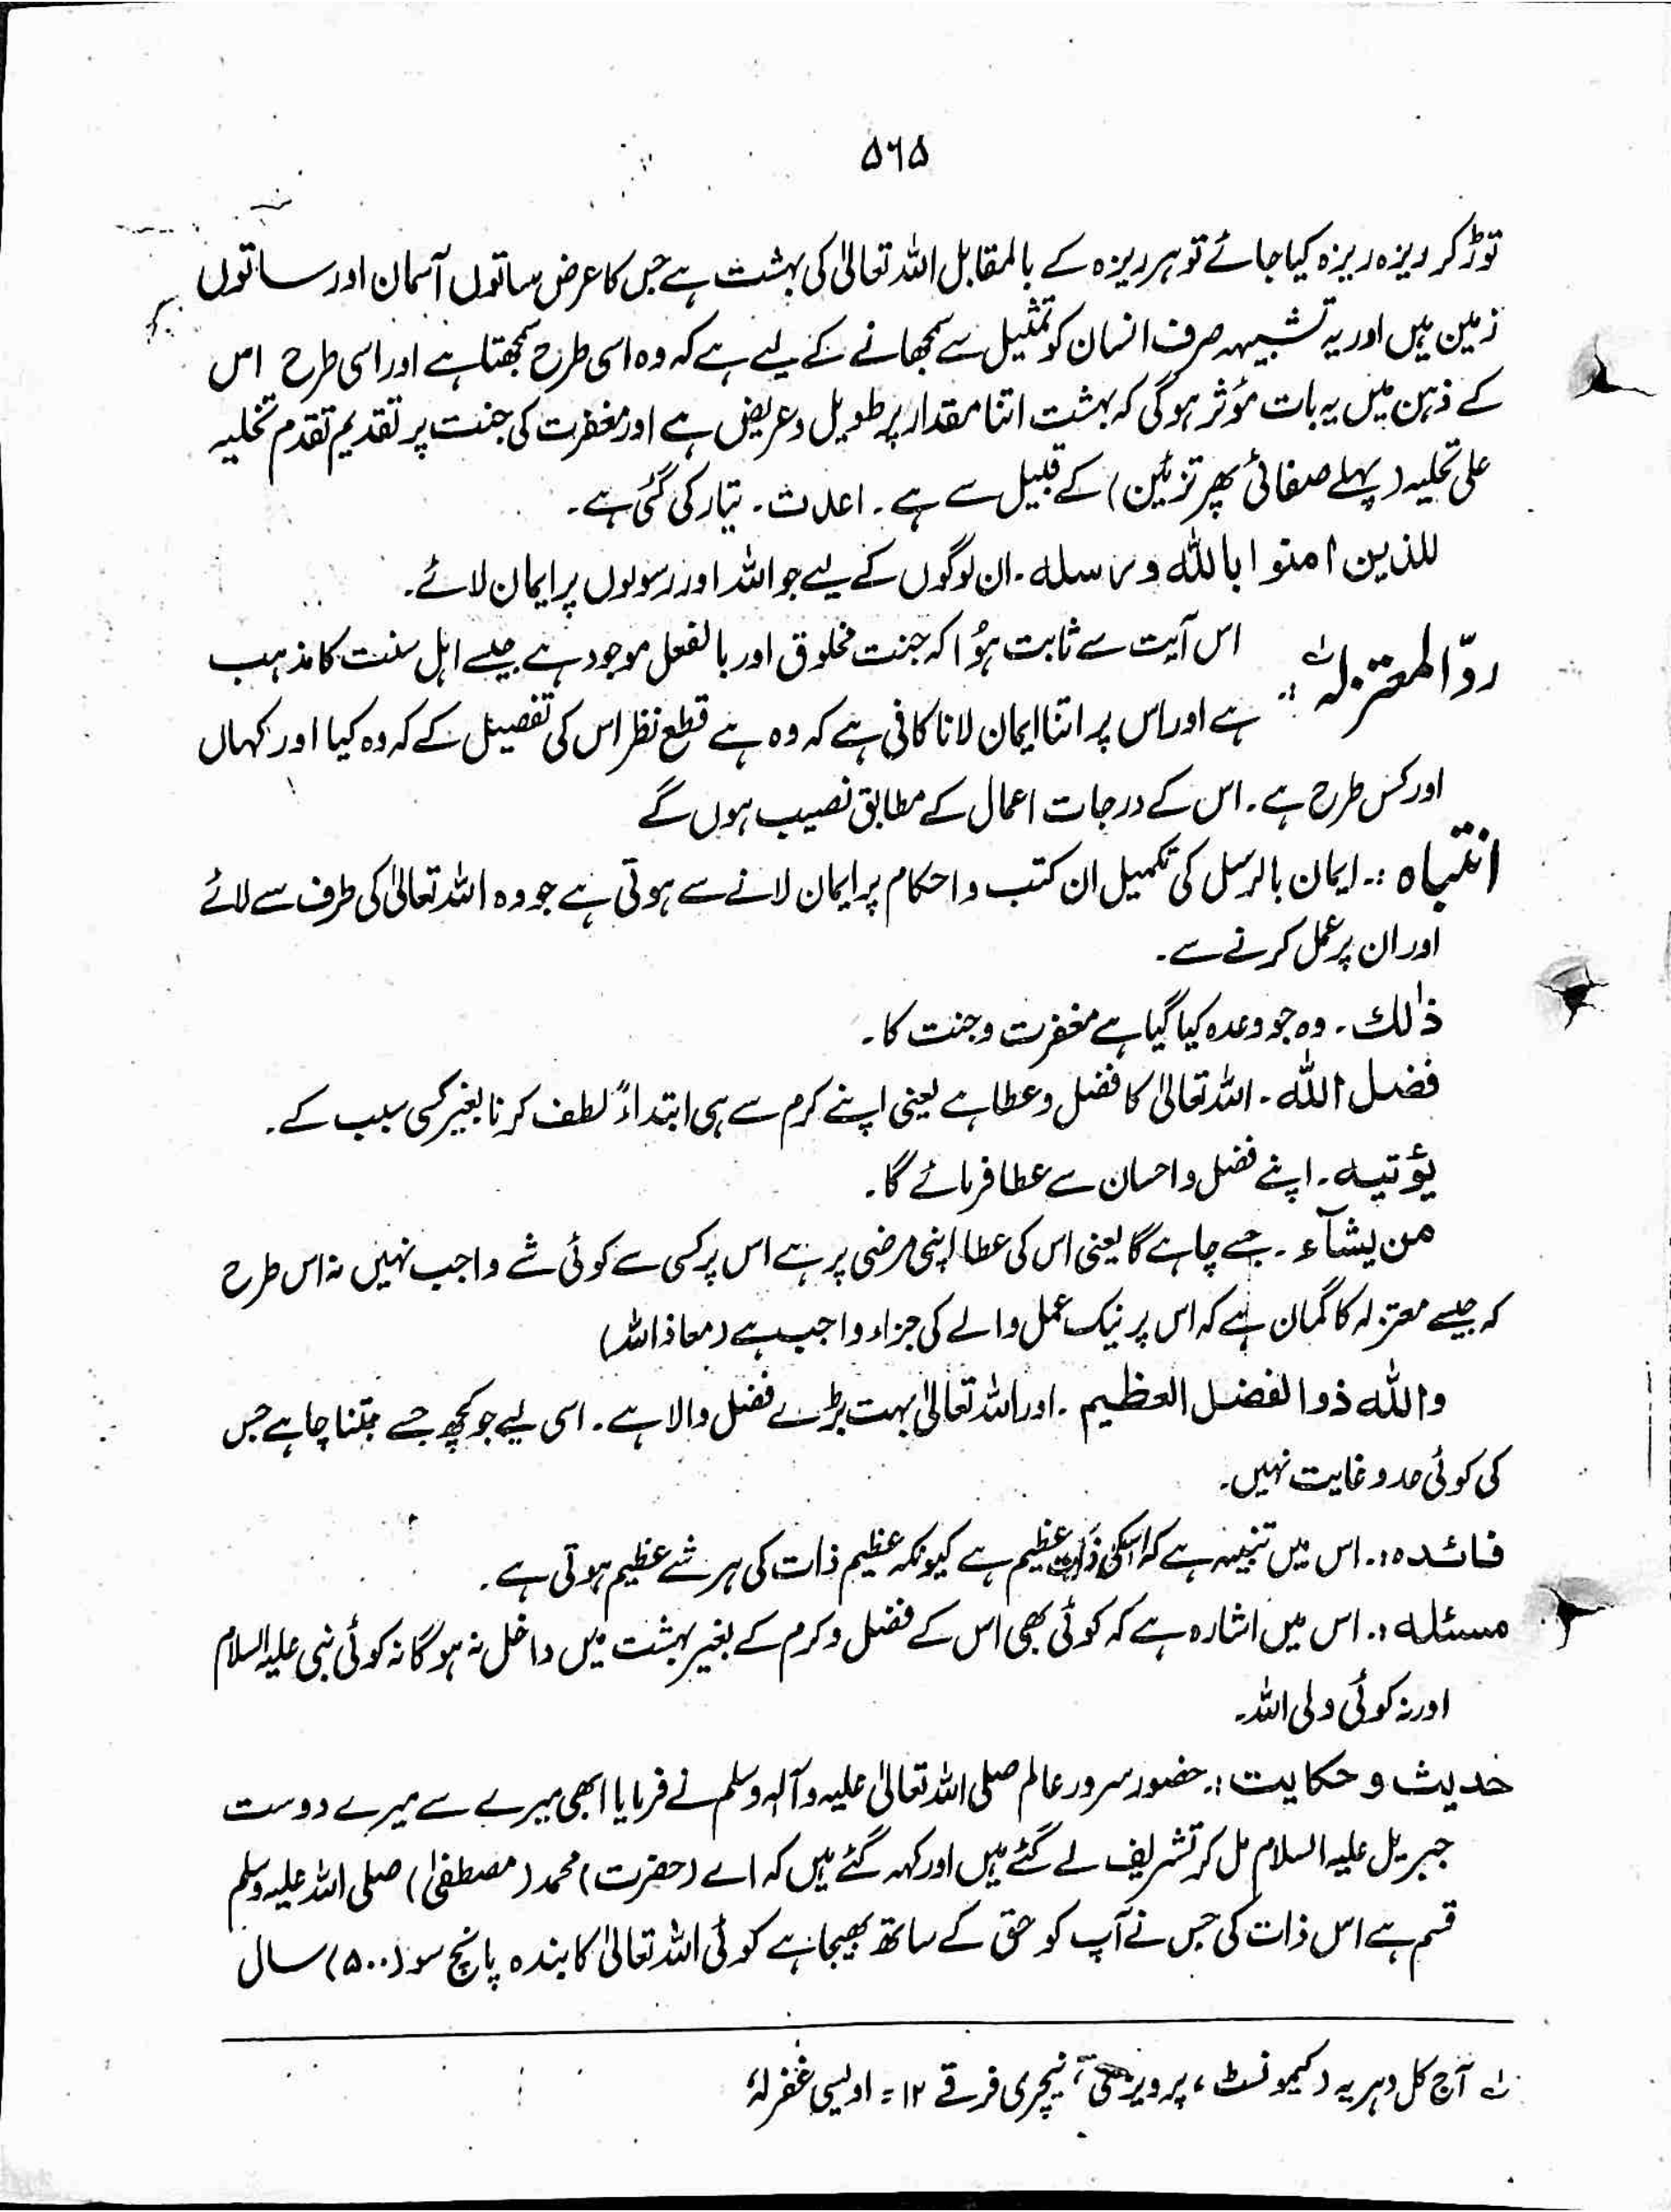 ۵۶۵
توڑ کر ریزہ ریزہ کیا جائے تو ہر ریزہ کے بالمقابل اللہ تعالیٰ کی بہشت ہے جس کا عرض ساتوں آسمان اور ساتوں
زمین ہیں اور یہ تشبیہہ صرف انسان کو تمثیل سے سمجھانے کے لیے ہے کہ وہ اسی طرح سمجھتا ہے اور اسی طرح اس
کے ذہن میں یہ بات مؤثر ہو گی کہ بہشت اتنا مقدار پر طویل و عریض ہے اور مغفرت کی جنت پر تقدیم تقدم تخلیہ
علی تحلیہ (پہلے صفائی پھر تزئین) کے قبیل سے ہے۔ اعدت۔ تیار کی گئی ہے۔
للذین اٰمنوا باللّٰہ ورسلہ۔ ان لوگوں کے لیے جو اللہ اور رسولوں پر ایمان لائے۔
ردّ المعتزلہ ؎ :۔ اس آیت سے ثابت ہُوا کہ جنت مخلوق اور بالفعل موجود ہے جیسے اہل سنت کا مذہب
ہے اور اس پر اتنا ایمان لانا کافی ہے کہ وہ ہے قطع نظر اس کی تفصیل کے کہ وہ کیا اور کہاں
اور کس طرح ہے۔ اس کے درجات اعمال کے مطابق نصیب ہوں گے
انتباہ :۔ ایمان بالرسل کی تکمیل ان کتب و احکام پر ایمان لانے سے ہوتی ہے جو وہ اللہ تعالیٰ کی طرف سے لائے
اور ان پر عمل کرنے سے۔
ذٰلك۔ وہ جو وعدہ کیا گیا ہے مغفرت و جنت کا۔
فضل اللّٰہ۔ اللہ تعالیٰ کا فضل و عطا ہے یعنی اپنے کرم سے ہی ابتداءً لطف کرنا بغیر کسی سبب کے۔
یؤتیہ۔ اپنے فضل و احسان سے عطا فرمائے گا۔
من یشآء۔ جسے چاہے گا یعنی اس کی عطا اپنی مرضی پر ہے اس پر کسی سے کوئی شے واجب نہیں نہ اس طرح
کہ جیسے معتزلہ کا گمان ہے کہ اس پر نیک عمل والے کی جزاء واجب ہے (معاذ اللہ)
واللّٰہ ذوالفضل العظیم۔ اور اللہ تعالیٰ بہت بڑے فضل والا ہے۔ اسی لیے جو کچھ جسے جتنا چاہے جس
کی کوئی حد و غایت نہیں۔
فائدہ :۔ اس میں تنبیہہ ہے کہ اسکی ذات عظیم ہے کیونکہ عظیم ذات کی ہر شے عظیم ہوتی ہے۔
مسئلہ :۔ اس میں اشارہ ہے کہ کوئی بھی اس کے فضل و کرم کے بغیر بہشت میں داخل نہ ہو گا نہ کوئی نبی علیہ السلام
اور نہ کوئی ولی اللہ۔
حدیث و حکایت :۔ حضور سرور عالم صلی اللہ تعالیٰ علیہ وآلہ وسلم نے فرمایا ابھی میرے سے میرے دوست
جبریل علیہ السلام مل کر تشریف لے گئے ہیں اور کہہ گئے ہیں کہ اے (حضرت) محمد (مصطفیٰ) صلی اللہ علیہ وسلم
قسم ہے اس ذات کی جس نے آپ کو حق کے ساتھ بھیجا ہے کوئی اللہ تعالیٰ کا بندہ پانچ سو (۵۰۰) سال
؎ آج کل دہریہ (کیمونسٹ، پرویزی، نیچری فرقے ۱۲ = اویسی غفرلہٗ